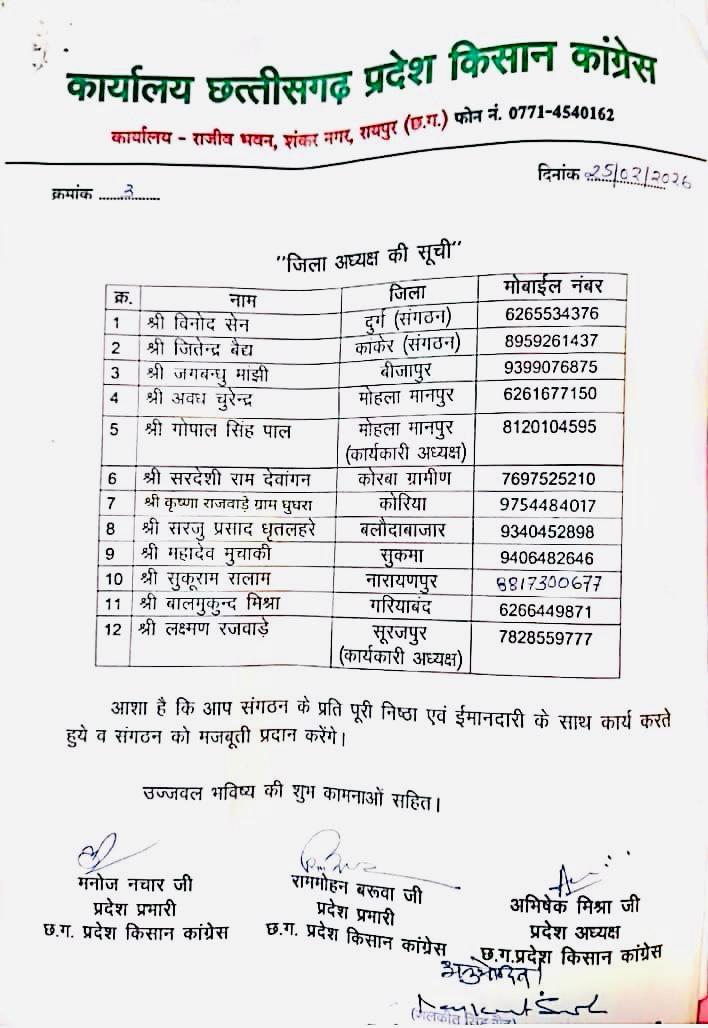 कार्यालय छत्तीसगढ़ प्रदेश किसान कांग्रेस
कार्यालय - राजीव भवन, शंकर नगर, रायपुर (छ.ग.) फोन नं. 0771-4540162
क्रमांक ....3....... दिनांक 25/02/2026
"जिला अध्यक्ष की सूची"
क्र. नाम जिला मोबाईल नंबर
1 श्री विनोद सेन दुर्ग (संगठन) 6265534376
2 श्री जितेन्द्र बैद्य कांकेर (संगठन) 8959261437
3 श्री जगबन्धु मांझी बीजापुर 9399076875
4 श्री अवध चुरेन्द्र मोहला मानपुर 6261677150
5 श्री गोपाल सिंह पाल मोहला मानपुर 8120104595
(कार्यकारी अध्यक्ष)
6 श्री सरदेशी राम देवांगन कोरबा ग्रामीण 7697525210
7 श्री कृष्णा राजवाड़े ग्राम घुघरा कोरिया 9754484017
8 श्री सरजु प्रसाद धृतलहरे बलौदाबाजार 9340452898
9 श्री महादेव मुचाकी सुकमा 9406482646
10 श्री सुकूराम सलाम नारायणपुर 8817300677
11 श्री बालमुकुन्द मिश्रा गरियाबंद 6266449871
12 श्री लक्ष्मण रजवाड़े सूरजपुर 7828559777
(कार्यकारी अध्यक्ष)
आशा है कि आप संगठन के प्रति पूरी निष्ठा एवं ईमानदारी के साथ कार्य करते
हुये व संगठन को मजबूती प्रदान करेंगे।
उज्जवल भविष्य की शुभ कामनाओं सहित।
मनोज नचार जी
प्रदेश प्रभारी
छ.ग. प्रदेश किसान कांग्रेस
राममोहन बरूवा जी
प्रदेश प्रभारी
छ.ग. प्रदेश किसान कांग्रेस
अभिषेक मिश्रा जी
प्रदेश अध्यक्ष
छ.ग.प्रदेश किसान कांग्रेस
अनुमोदित।